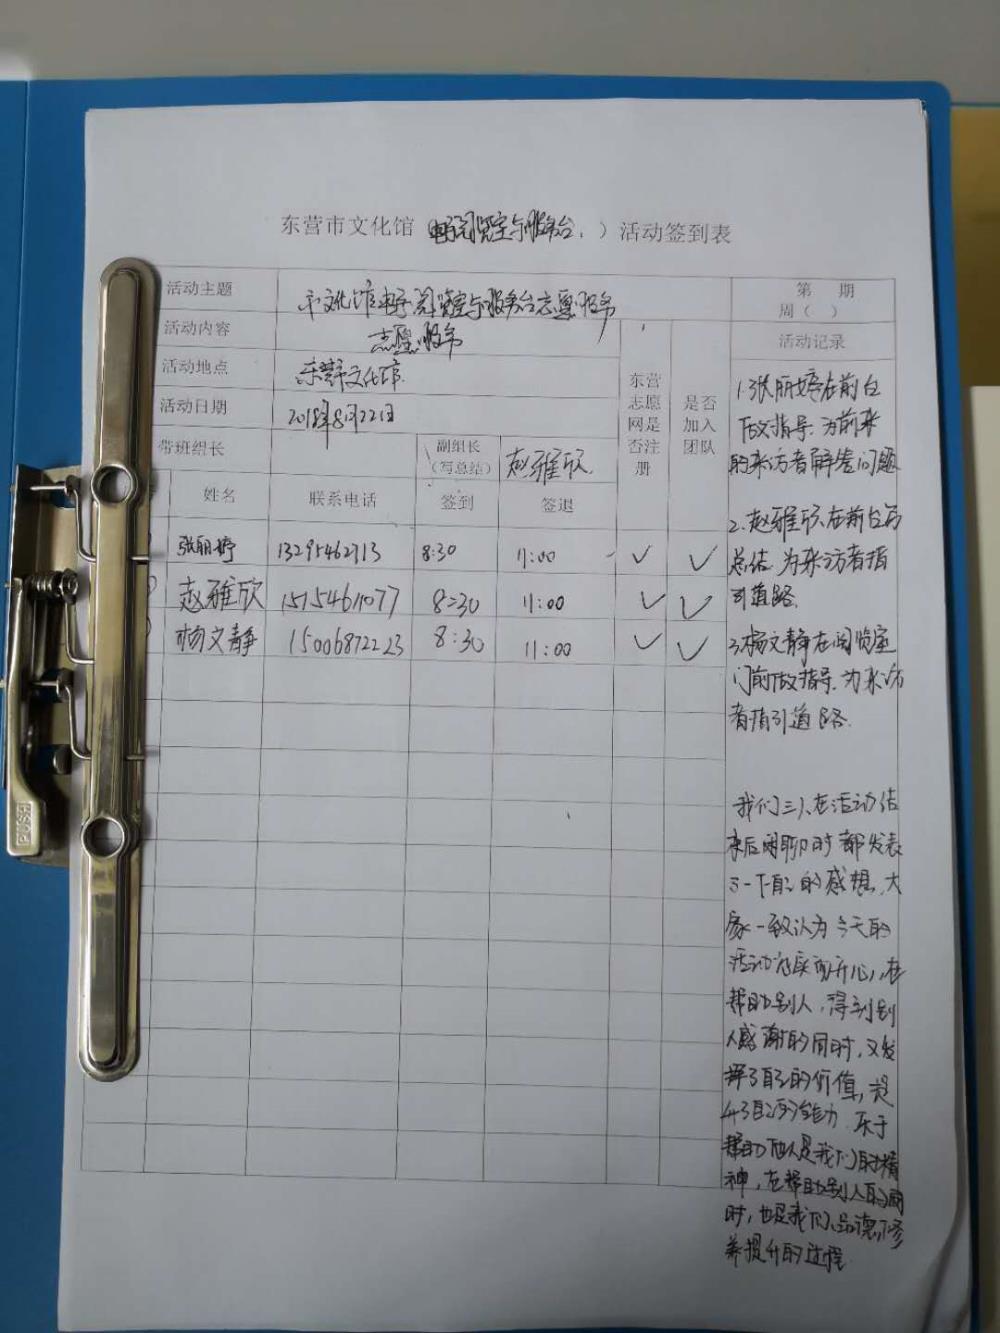 东营市文化馆（电子阅览室与服务台）活动签到表
活动主题 市文化馆电子阅览室与服务台志愿服务 第 期
周（ ）
活动内容 志愿服务 活动记录
活动地点 东营市文化馆
活动日期 2018年8月22日
带班组长 副组长（写总结） 赵雅欣
东营志愿网是否注册 是否加入团队
姓名 联系电话 签到 签退
张丽婷 13295462713 8:30 11:00 ✓ ✓
赵雅欣 15154611077 8:30 11:00 ✓ ✓
杨文静 15006872223 8:30 11:00 ✓ ✓
1.张丽婷在前台
做指导.为前来
的来访者解答问题
2.赵雅欣在前台写
总结.为来访者指
引道路.
3.杨文静在阅览室
门前做指导.为来访
者指引道路.
我们三人在活动结
束后闲聊时都发表
了一下自己的感想,大
家一致认为今天的
活动充实而开心,在
帮助别人,得到别
人感谢的同时,又发
挥了自己的价值,提
升了自己的能力.乐于
帮助他人是我们的精
神,在帮助别人的同
时,也是我们品德修
养提升的过程.
PUSH